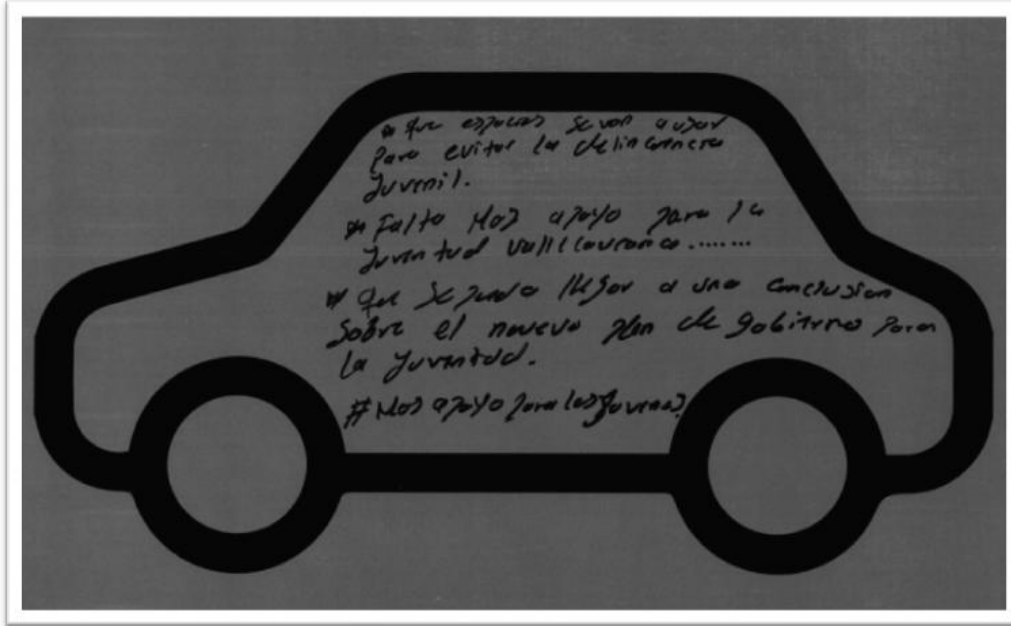 * Que espacios se van a usar
para evitar la delincuencia
Juvenil.
* Falta Mas apoyo para la
Juventud vallecaucana.......
* Que se pueda llegar a una conclusion
sobre el nuevo plan de gobierno para
la Juventud.
# Mas apoyo para los Jovenes.